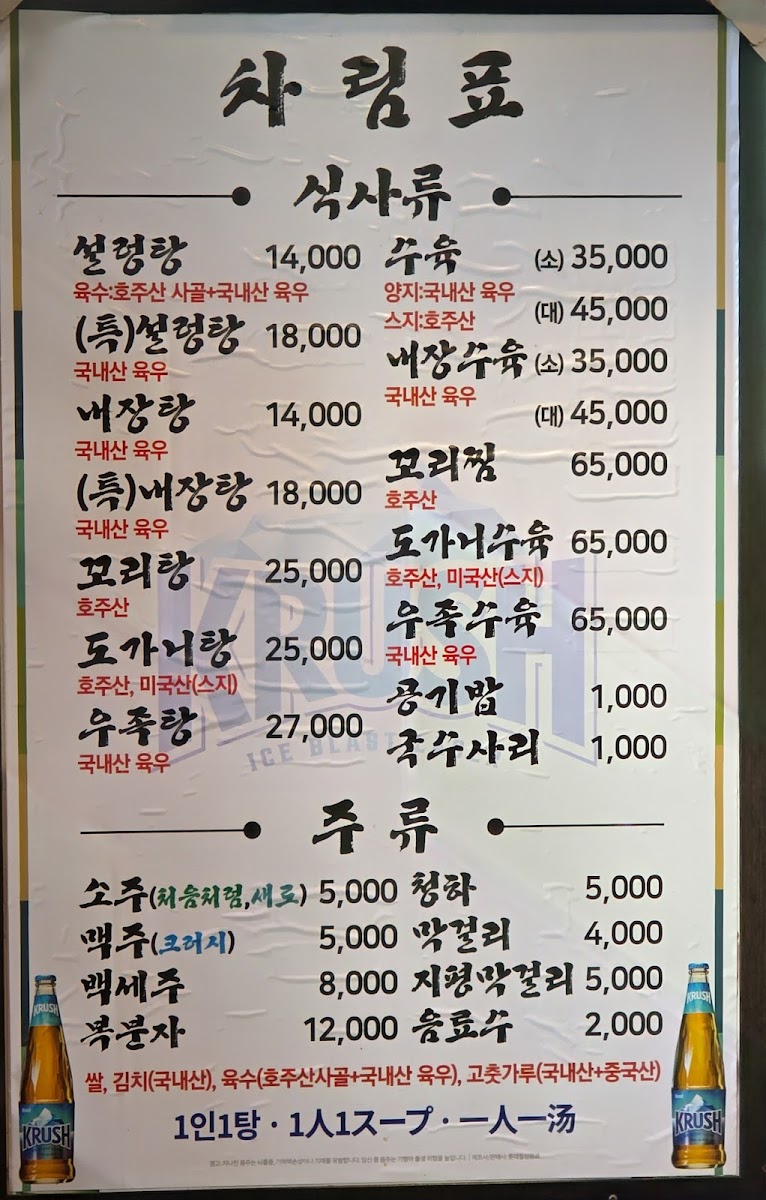 차림표
식사류
설렁탕 14,000
육수:호주산 사골+국내산 육우
(특)설렁탕 18,000
국내산 육우
내장탕 14,000
국내산 육우
(특)내장탕 18,000
국내산 육우
꼬리탕 25,000
호주산
도가니탕 25,000
호주산, 미국산(스지)
우족탕 27,000
국내산 육우
수육 (소) 35,000
양지:국내산 육우
(대) 45,000
스지:호주산
내장수육 (소) 35,000
국내산 육우
(대) 45,000
꼬리찜 65,000
호주산
도가니수육 65,000
호주산, 미국산(스지)
우족수육 65,000
국내산 육우
공기밥 1,000
국수사리 1,000
KRUSH
ICE BLAST
주류
소주(처음처럼,새로) 5,000
맥주(크러시) 5,000
백세주 8,000
복분자 12,000
청하 5,000
막걸리 4,000
지평막걸리 5,000
음료수 2,000
쌀, 김치(국내산), 육수(호주산사골+국내산 육우), 고춧가루(국내산+중국산)
1인1탕 · 1人1スープ · 一人一汤
KRUSH
KRUSH
KRUSH
KRUSH